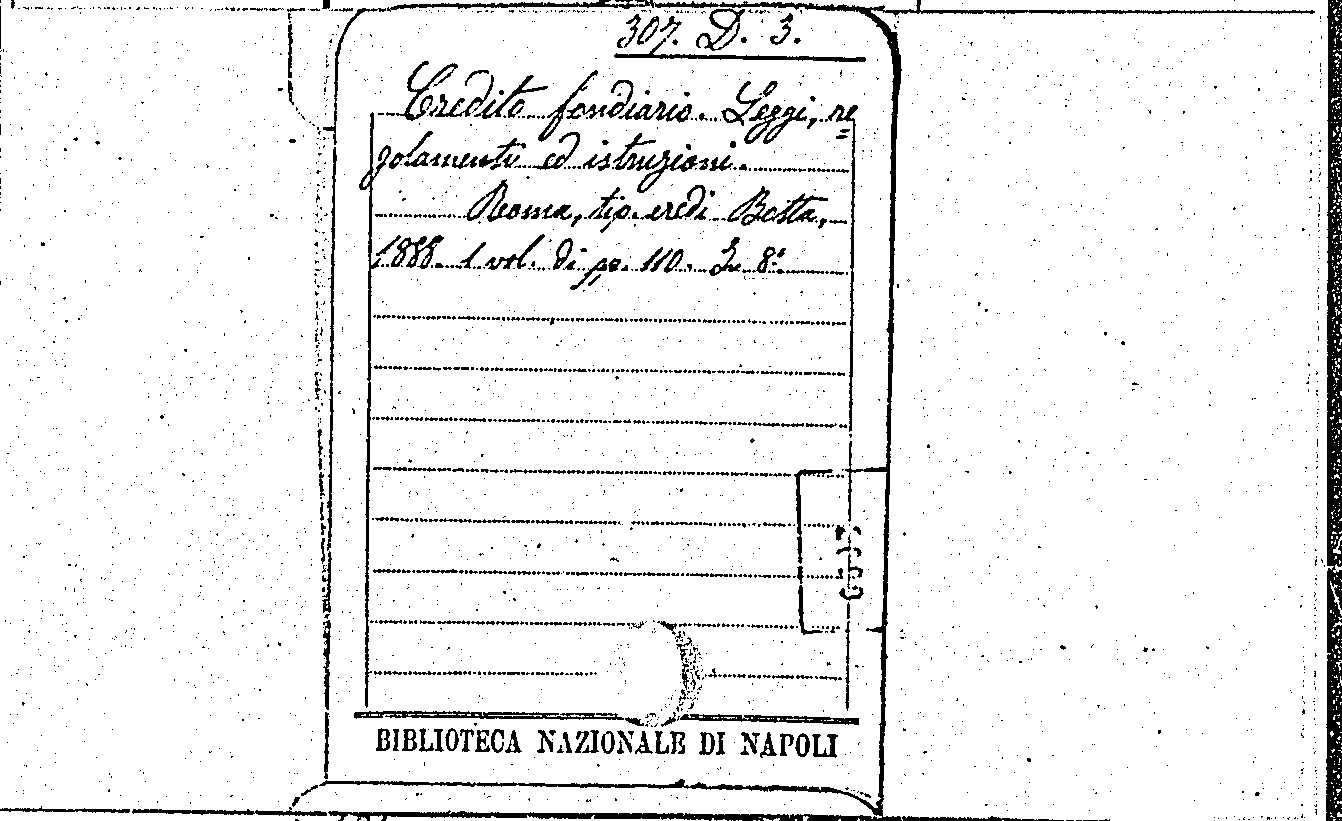 307. D. 3.
Credito fondiario. Leggi, re=
golamenti ed istruzioni.
Roma, tip. eredi Botta,
1888. 1 vol. di pp. 110. In 8º.
BIBLIOTECA NAZIONALE DI NAPOLI